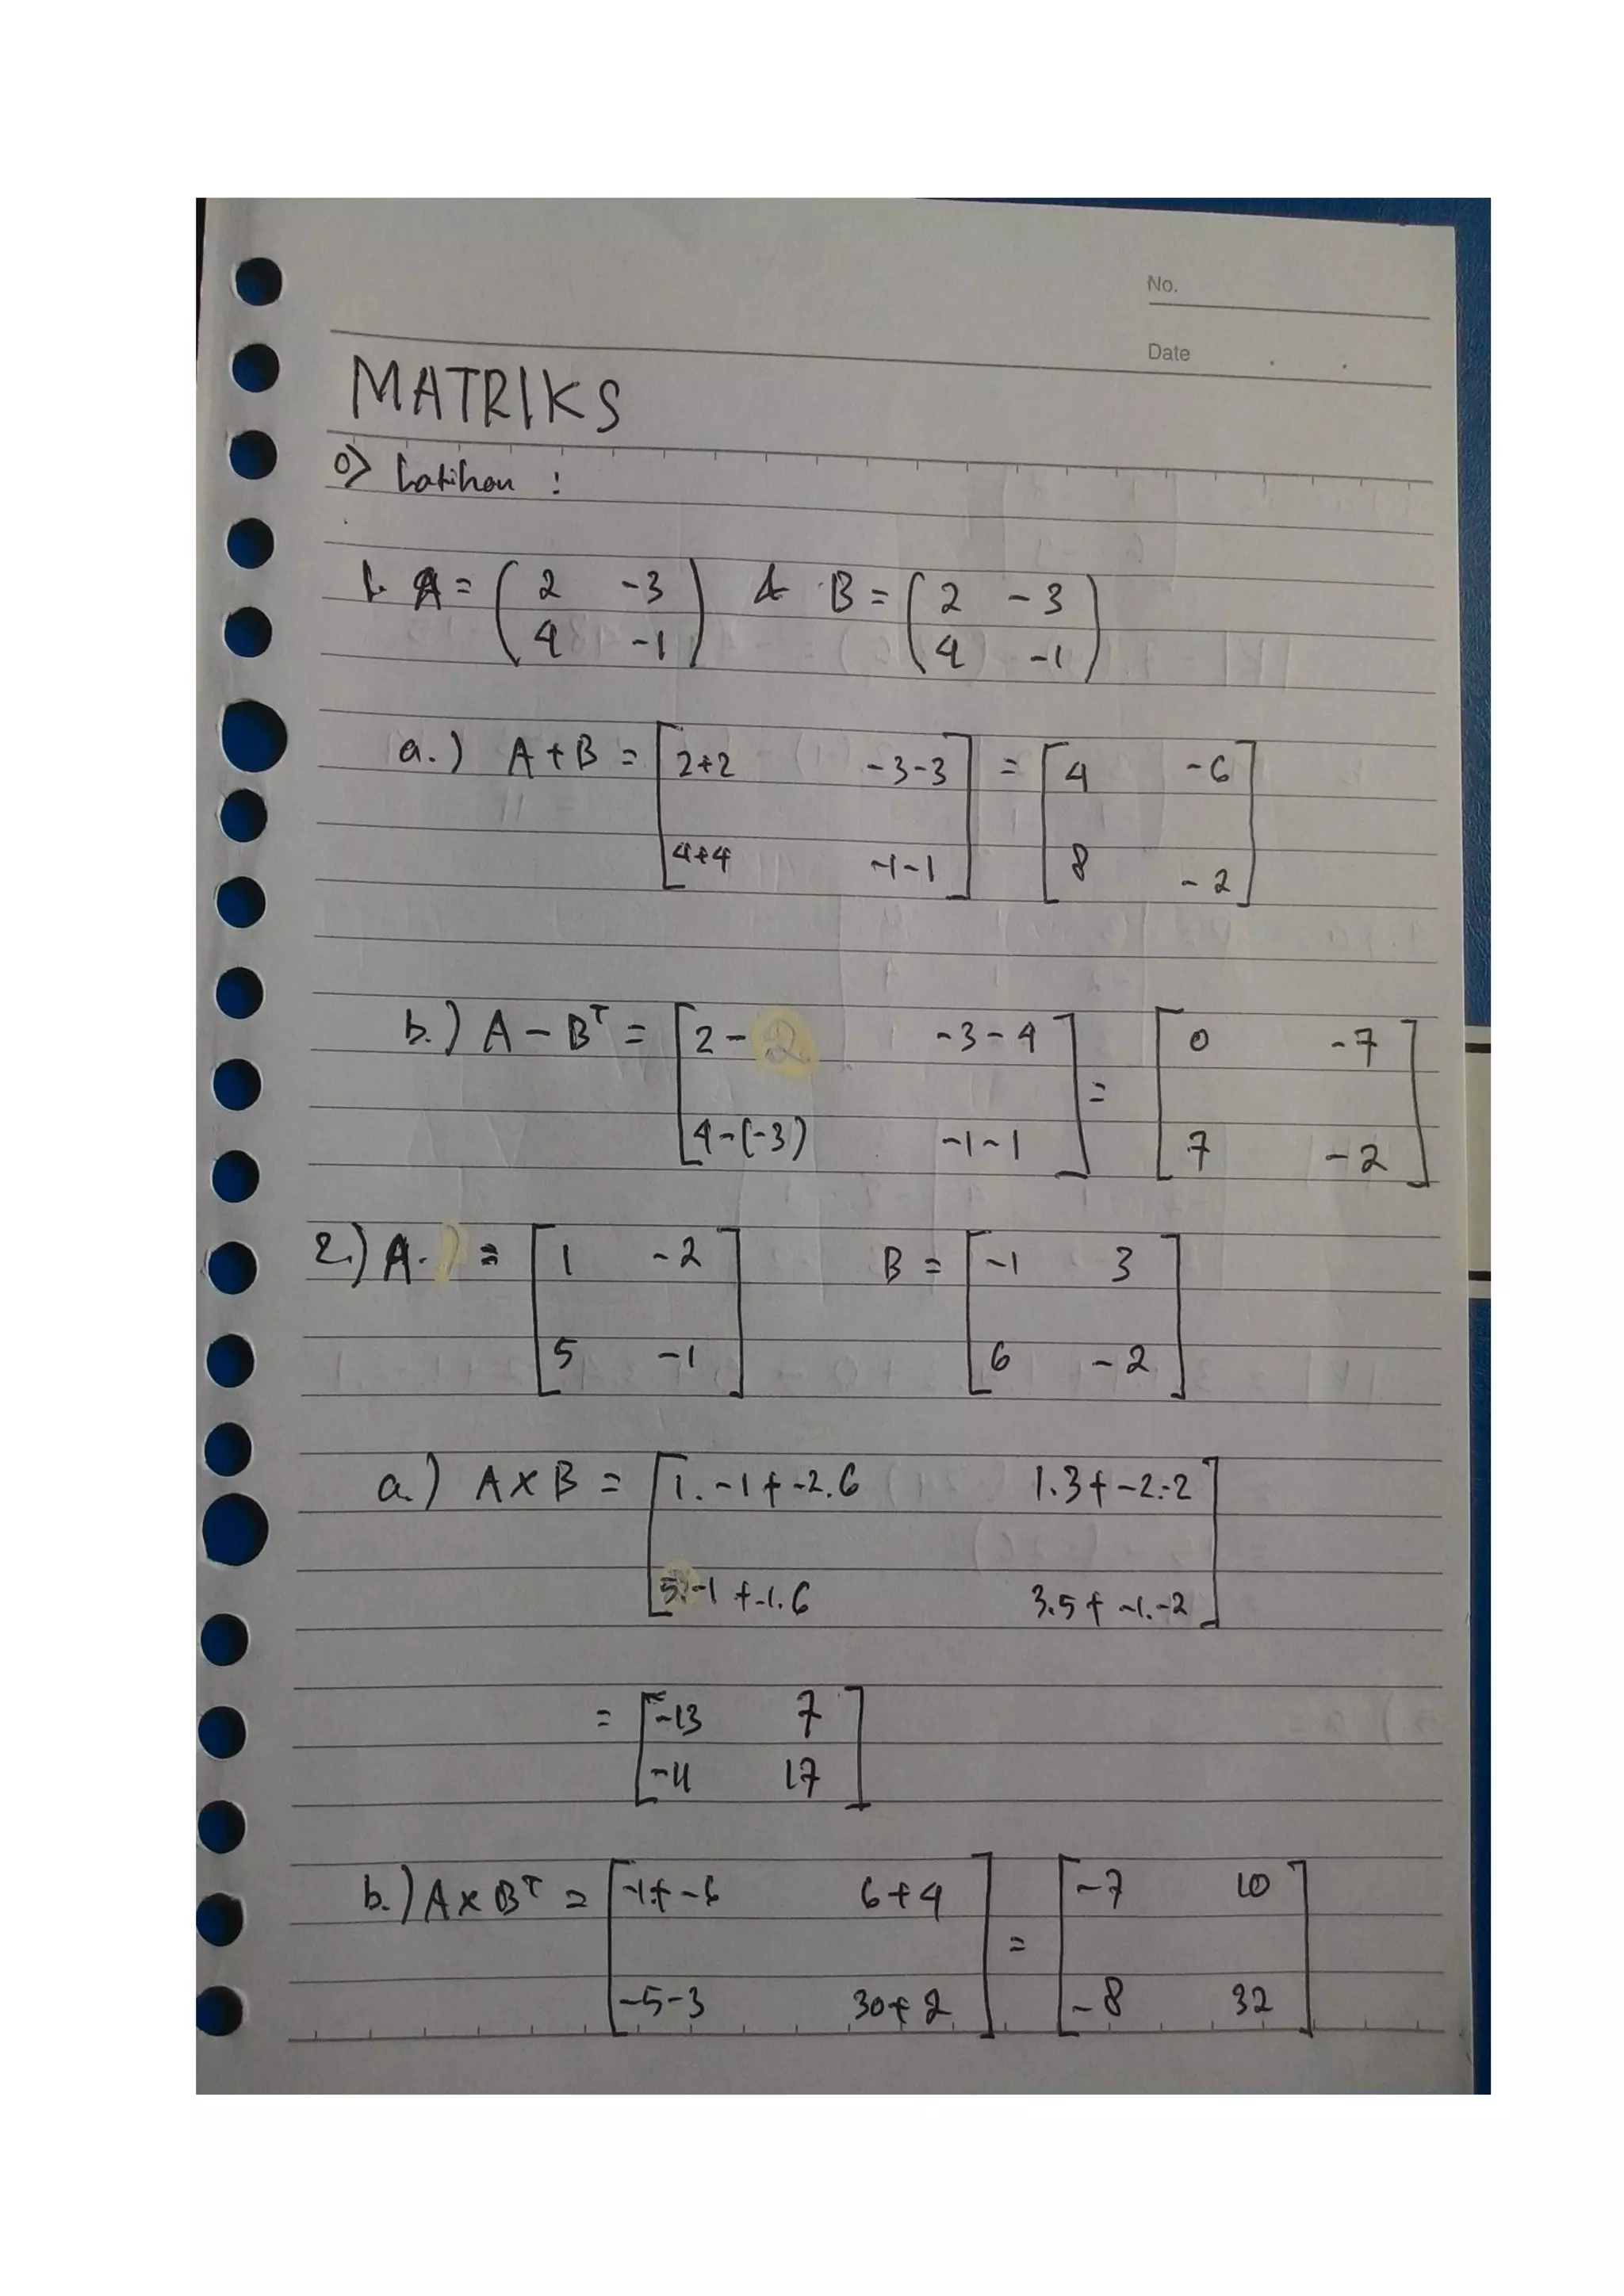 No.
Date
MATRIKS
o> Latihan :
1. A = ( 2 -3 ) & B = ( 2 -3 )
( 4 -1 ) ( 4 -1 )
a.) A + B = [ 2+2 -3-3 ] = [ 4 -6 ]
[ 4+4 -1-1 ] [ 8 -2 ]
b.) A - Bᵀ = [ 2 - 2 -3-4 ] = [ 0 -7 ]
[ 4-(-3) -1-1 ] [ 7 -2 ]
2.) A. = [ 1 -2 ] B = [ -1 3 ]
[ 5 -1 ] [ 6 -2 ]
a.) A x B = [ 1.-1+-2.6 1.3+-2.-2 ]
[ 5.-1+-1.6 3.5+-1.-2 ]
= [ -13 7 ]
[ -11 17 ]
b.) A x Bᵀ = [ -1+-6 6+4 ] = [ -7 10 ]
[ -5-3 30+2 ] [ -8 32 ]